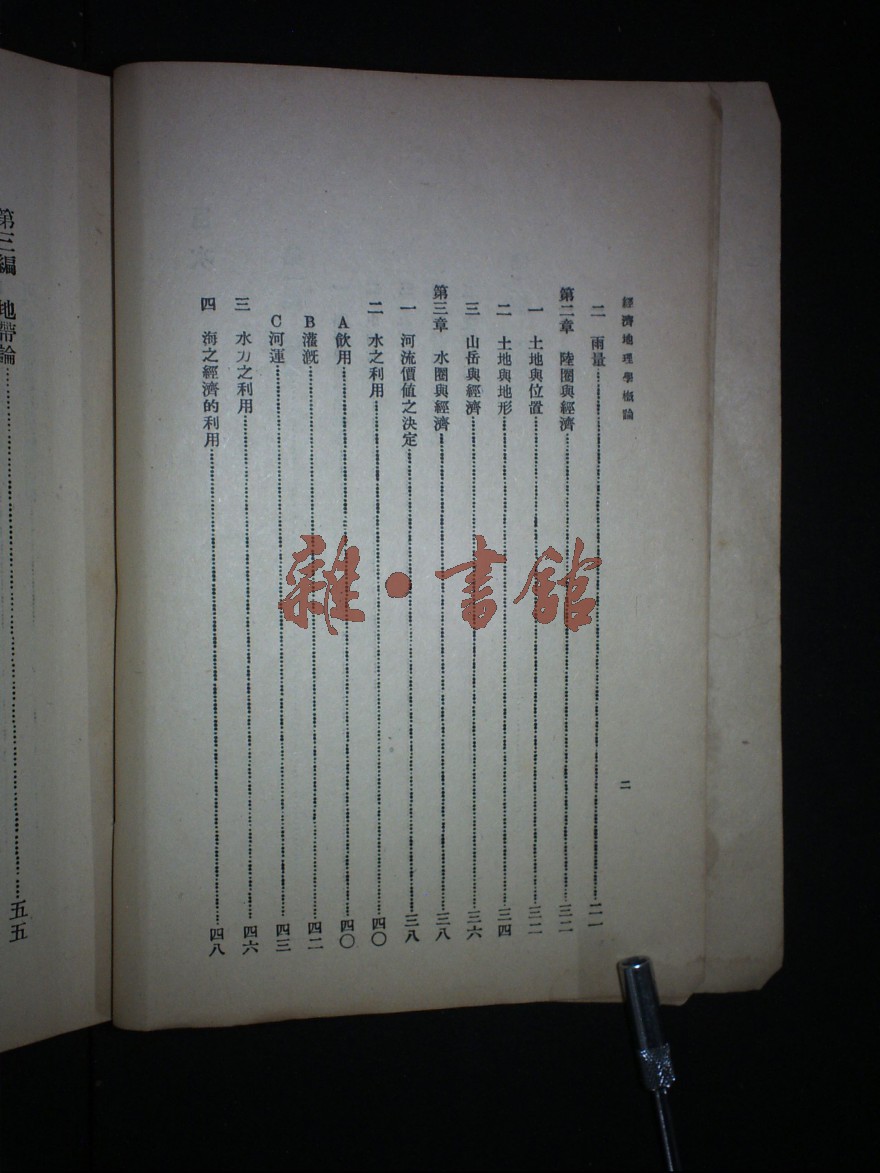 經濟地理學概論
二
二 雨量……二一
第二章 陸圈與經濟……三二
一 土地與位置……三二
二 土地與地形……三四
三 山岳與經濟……三六
第三章 水圈與經濟……三八
一 河流價値之決定……三八
二 水之利用……四〇
A 飲用……四〇
B 灌漑……四二
C 河運……四三
三 水力之利用……四六
四 海之經濟的利用……四八
第三編 地帶論……五五
雜·書館